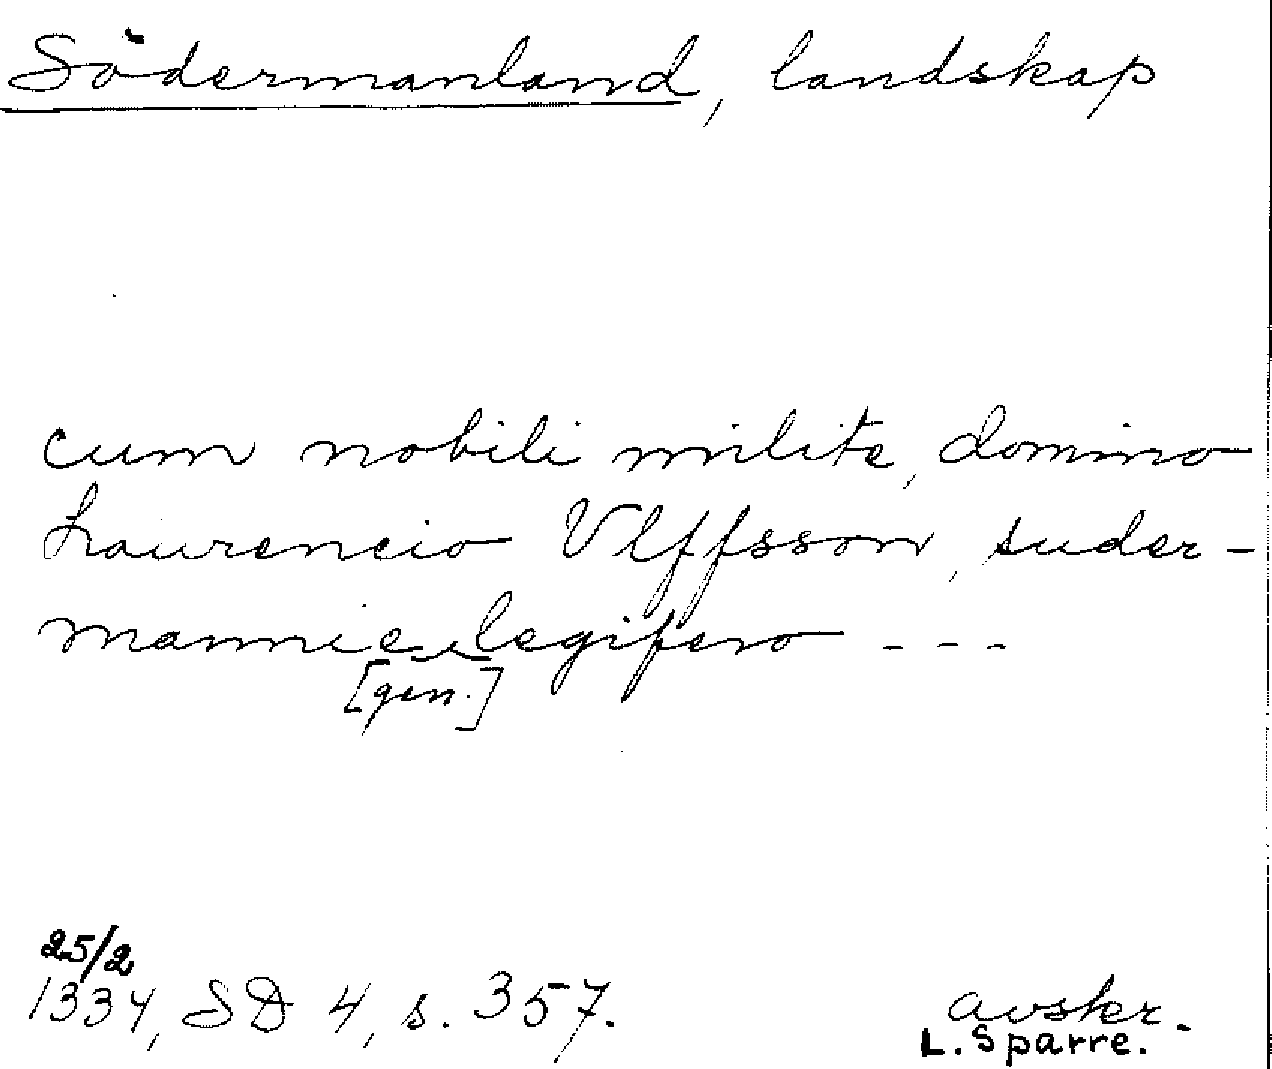 Södermanland, landskap
cum nobili milite, domino
Laurencio Vlffsson, suder-
mannie legifero ---
[gen.]
25/2
1334, SD 4, s. 357.
avskr.
L. Sparre.